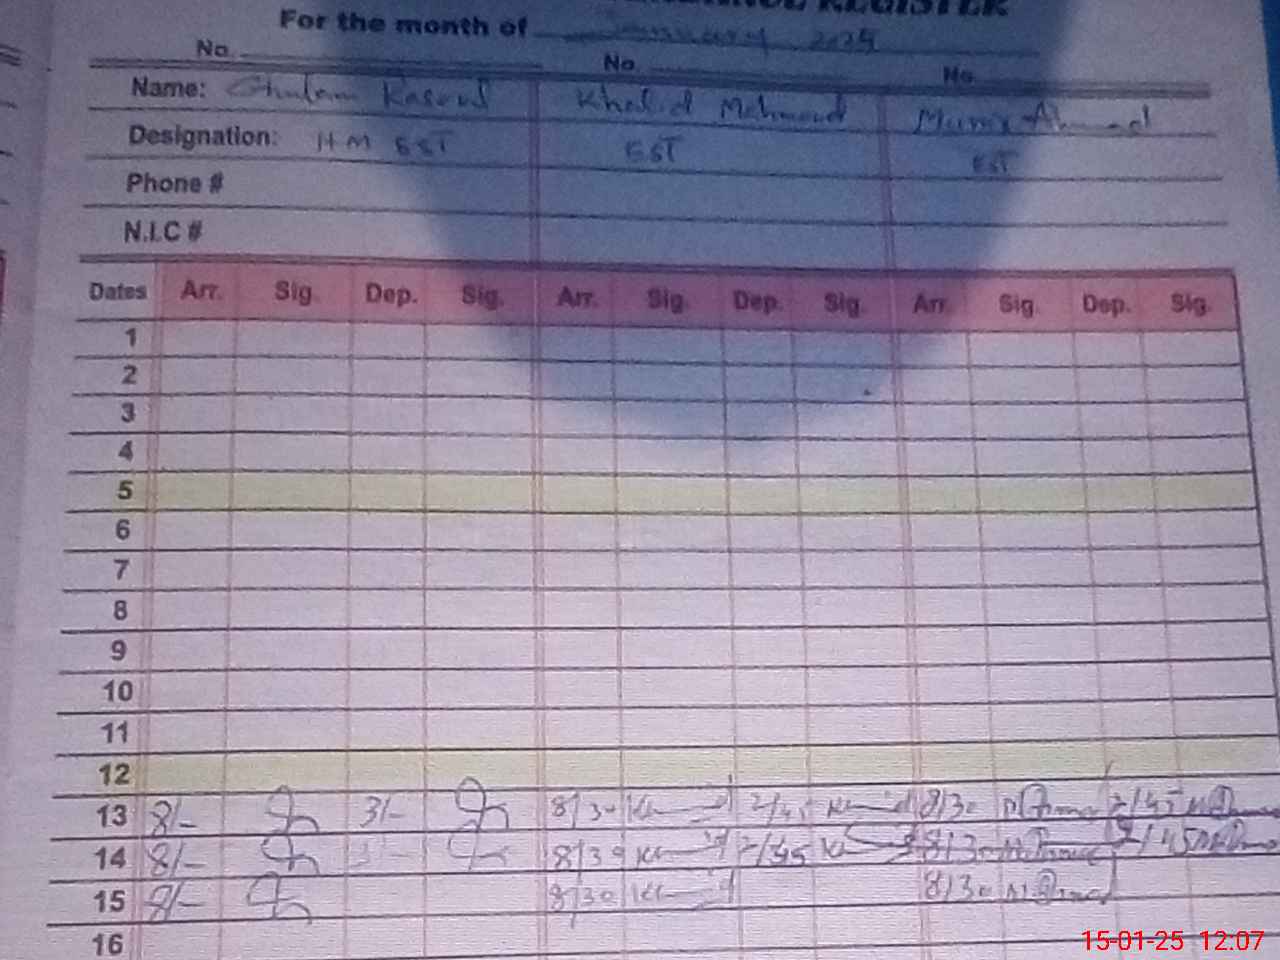 REGISTER
For the month of January 2025
No. No. No.
Name: Ghulam Rasool Khalid Mehmood Munir Ahmad
Designation: HM EST EST EST
Phone #
N.I.C #
Dates Arr. Sig. Dep. Sig. Arr. Sig. Dep. Sig. Arr. Sig. Dep. Sig.
1
2
3
4
5
6
7
8
9
10
11
12
13 8/- 3/- 8/30 2/45 8/30 2/45
14 8/- 3/- 8/30 2/45 8/30 2/45
15 8/- 8/30 8/30
16
15-01-25 12:07